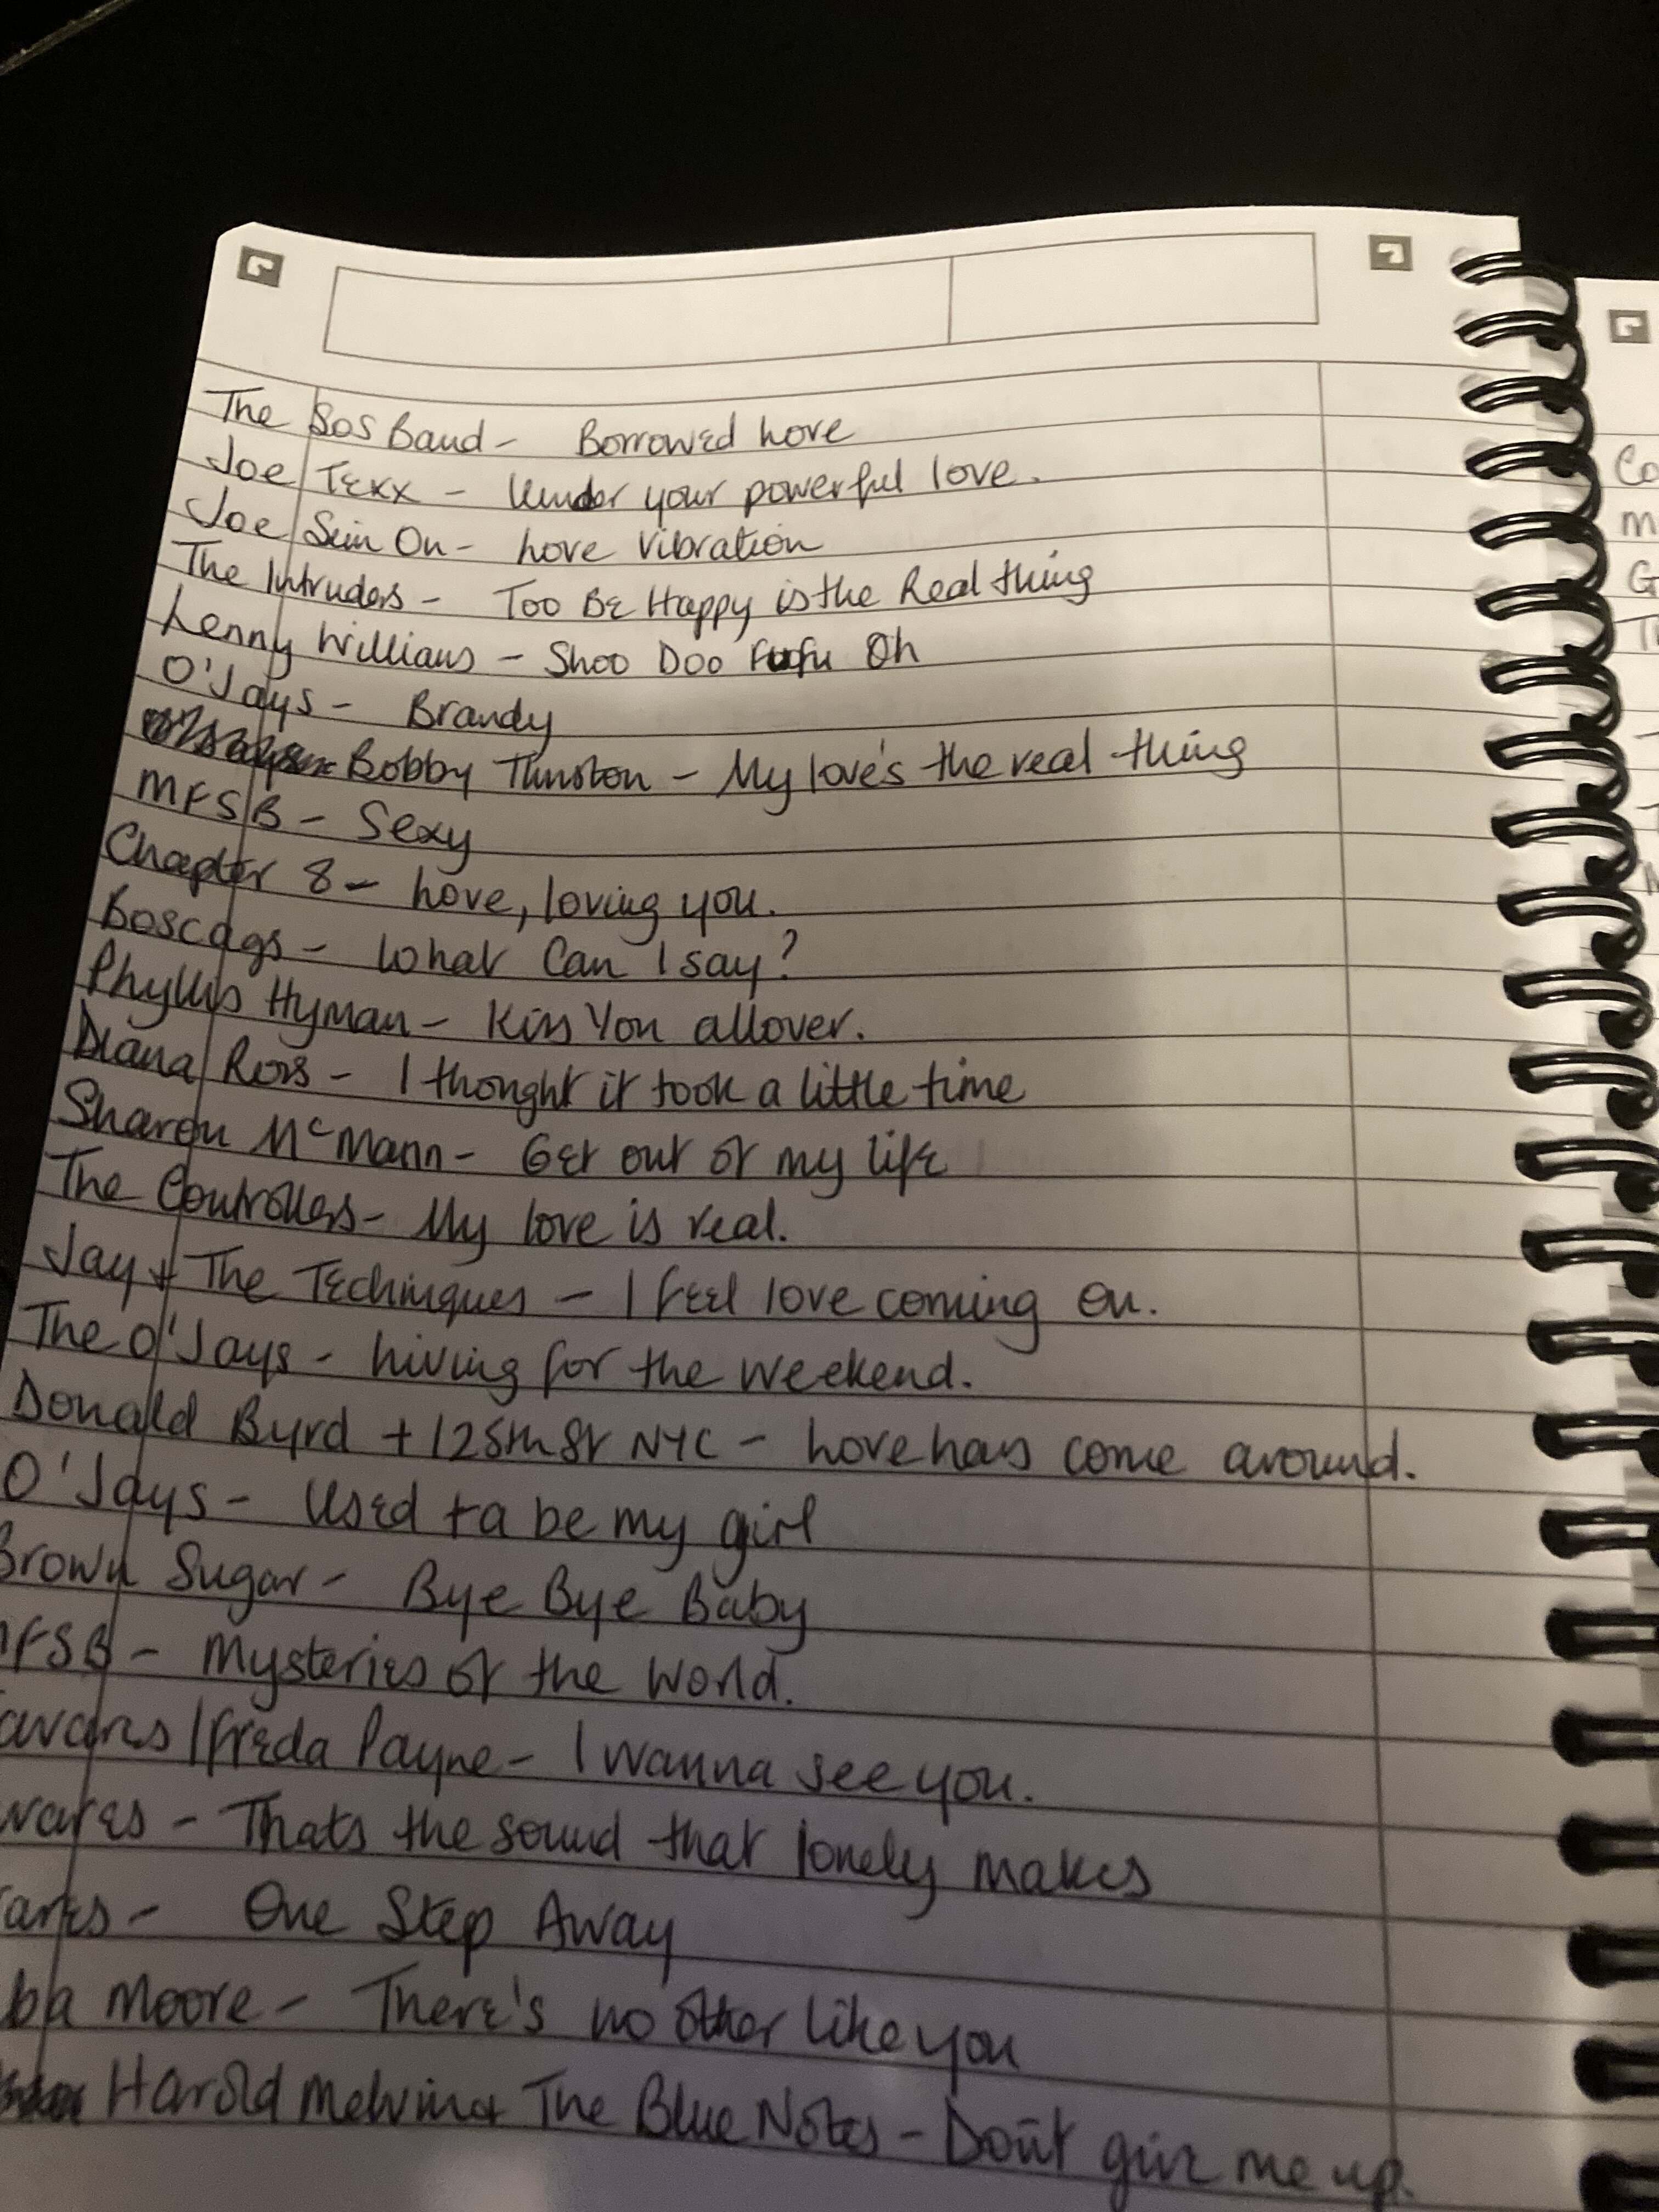 The SOS Band - Borrowed Love
Joe Texx - Under your powerful love.
Joe Sim On - Love Vibration
The Intruders - Too Be Happy is the Real thing
Lenny Williams - Shoo Doo Fufu Oh
O'Jays - Brandy
Bobby Thurston - My love's the real thing
MFSB - Sexy
Chapter 8 - Love, loving you.
Boscags - What Can I say?
Phyllis Hyman - Kiss You all over.
Diana Ross - I thought it took a little time
Sharon McMann - Get out of my life
The Controllers - My love is real.
Jay + The Techniques - I feel love coming on.
The O'Jays - Living for the weekend.
Donald Byrd + 125th St NYC - Love has come around.
O'Jays - Used ta be my girl
Brown Sugar - Bye Bye Baby
MFSB - Mysteries of the World.
avares / Freda Payne - I wanna see you.
vares - Thats the sound that lonely makes
ares - One Step Away
ba Moore - There's no other like you
Harold Melvin + The Blue Notes - Don't give me up.
Co
m
G
T